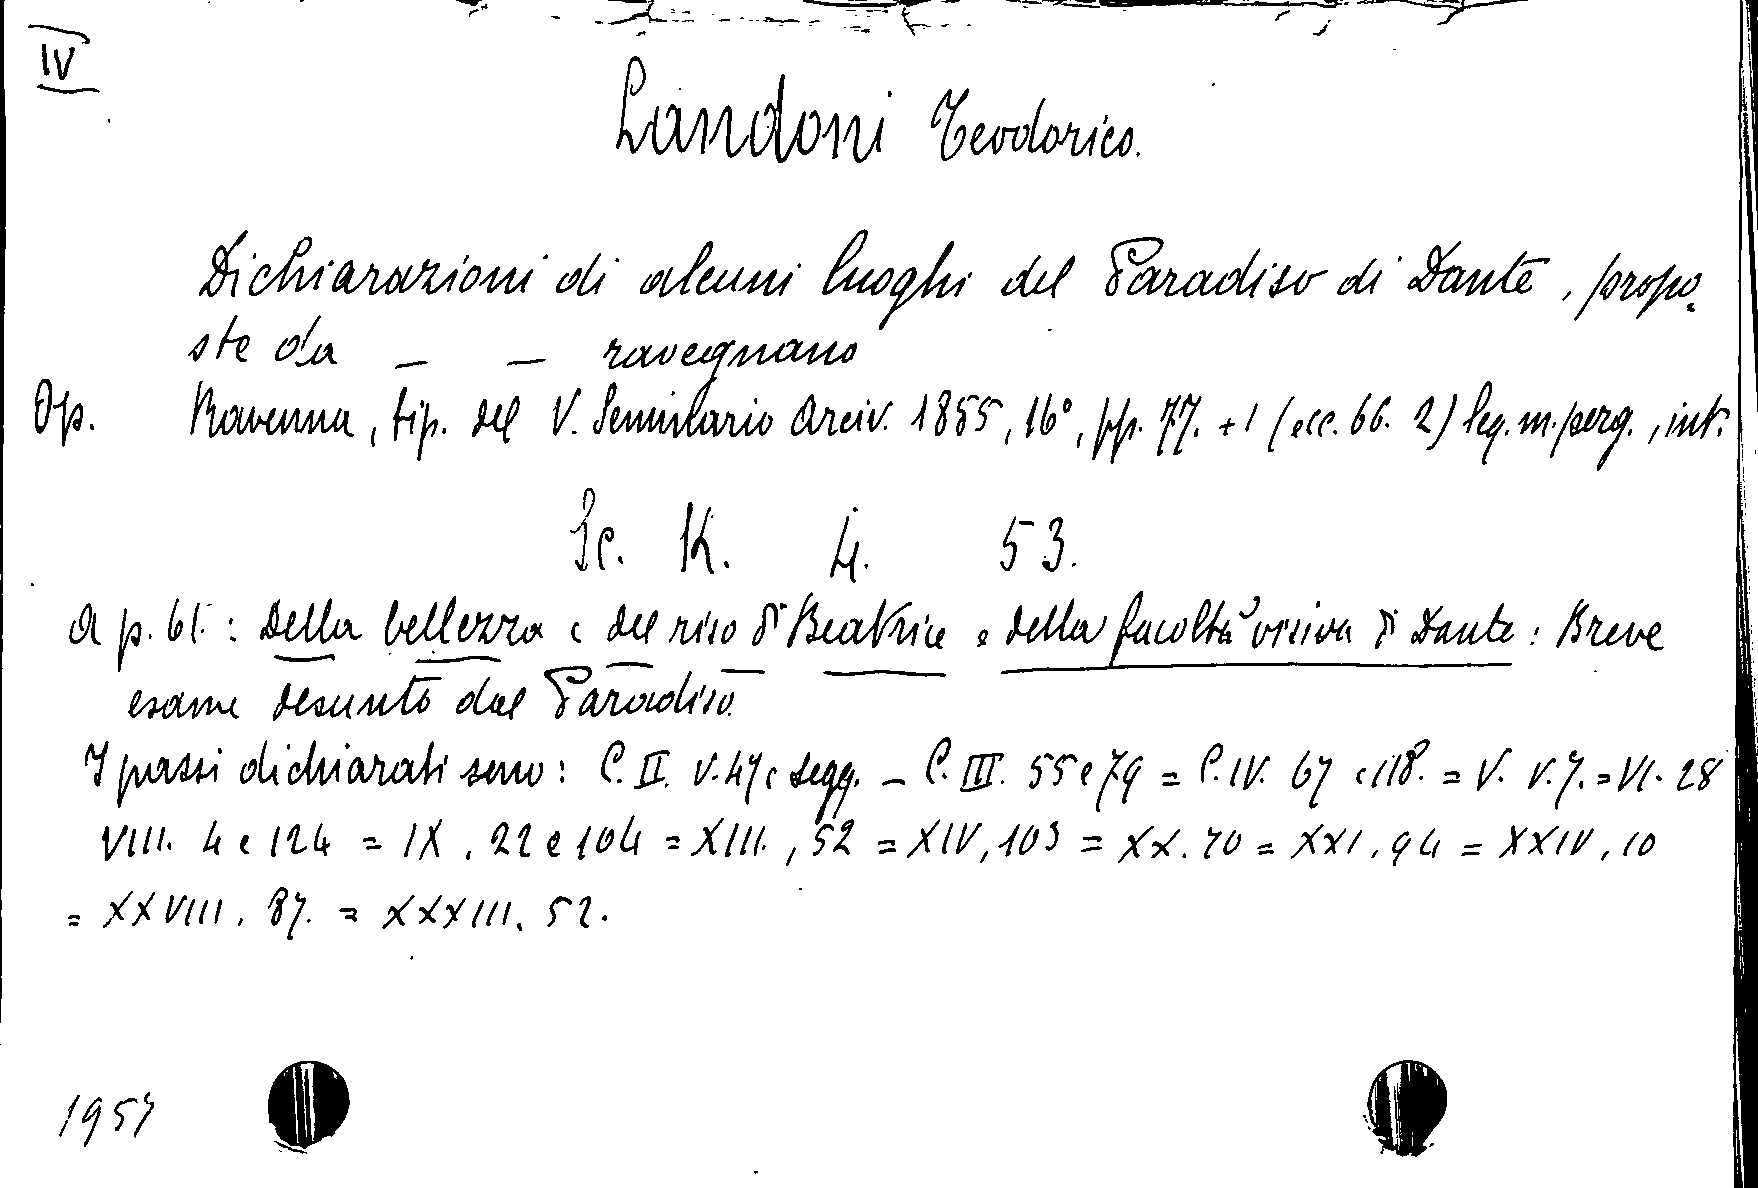 IV
Landoni Teodorico.
Dichiarazioni di alcuni luoghi del Paradiso di Dante, propo=
ste da — — ravegnano
Op. Ravenna, tip. del V. Seminario Arciv. 1855, 16°, pp. 77. + 1 (ecc. 66. 2) leg. m. perg., int.
Sc. K. 4. 53.
A p. 61. : Della bellezza e del riso di Beatrice e della facoltà visiva di Dante : Breve
esame desunto dal Paradiso.
I passi dichiarati sono : C. II. v. 47 e segg. — C. III. 55 e 79 = C. IV. 67 e 118. = V. v. 7. = VI. 28
VIII. 4 e 124 = IX. 22 e 104 = XIII., 52 = XIV, 103 = XX. 70 = XXI. 94 = XXIV, 10
= XXVIII. 87. = XXXIII. 52.
1957